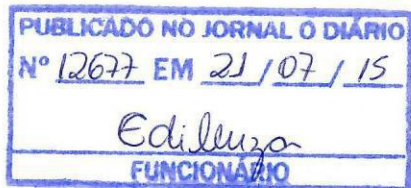 PUBLICADO NO JORNAL O DIÁRIO
Nº 12677 EM 21 / 07 / 15
Edileuza
FUNCIONÁRIO